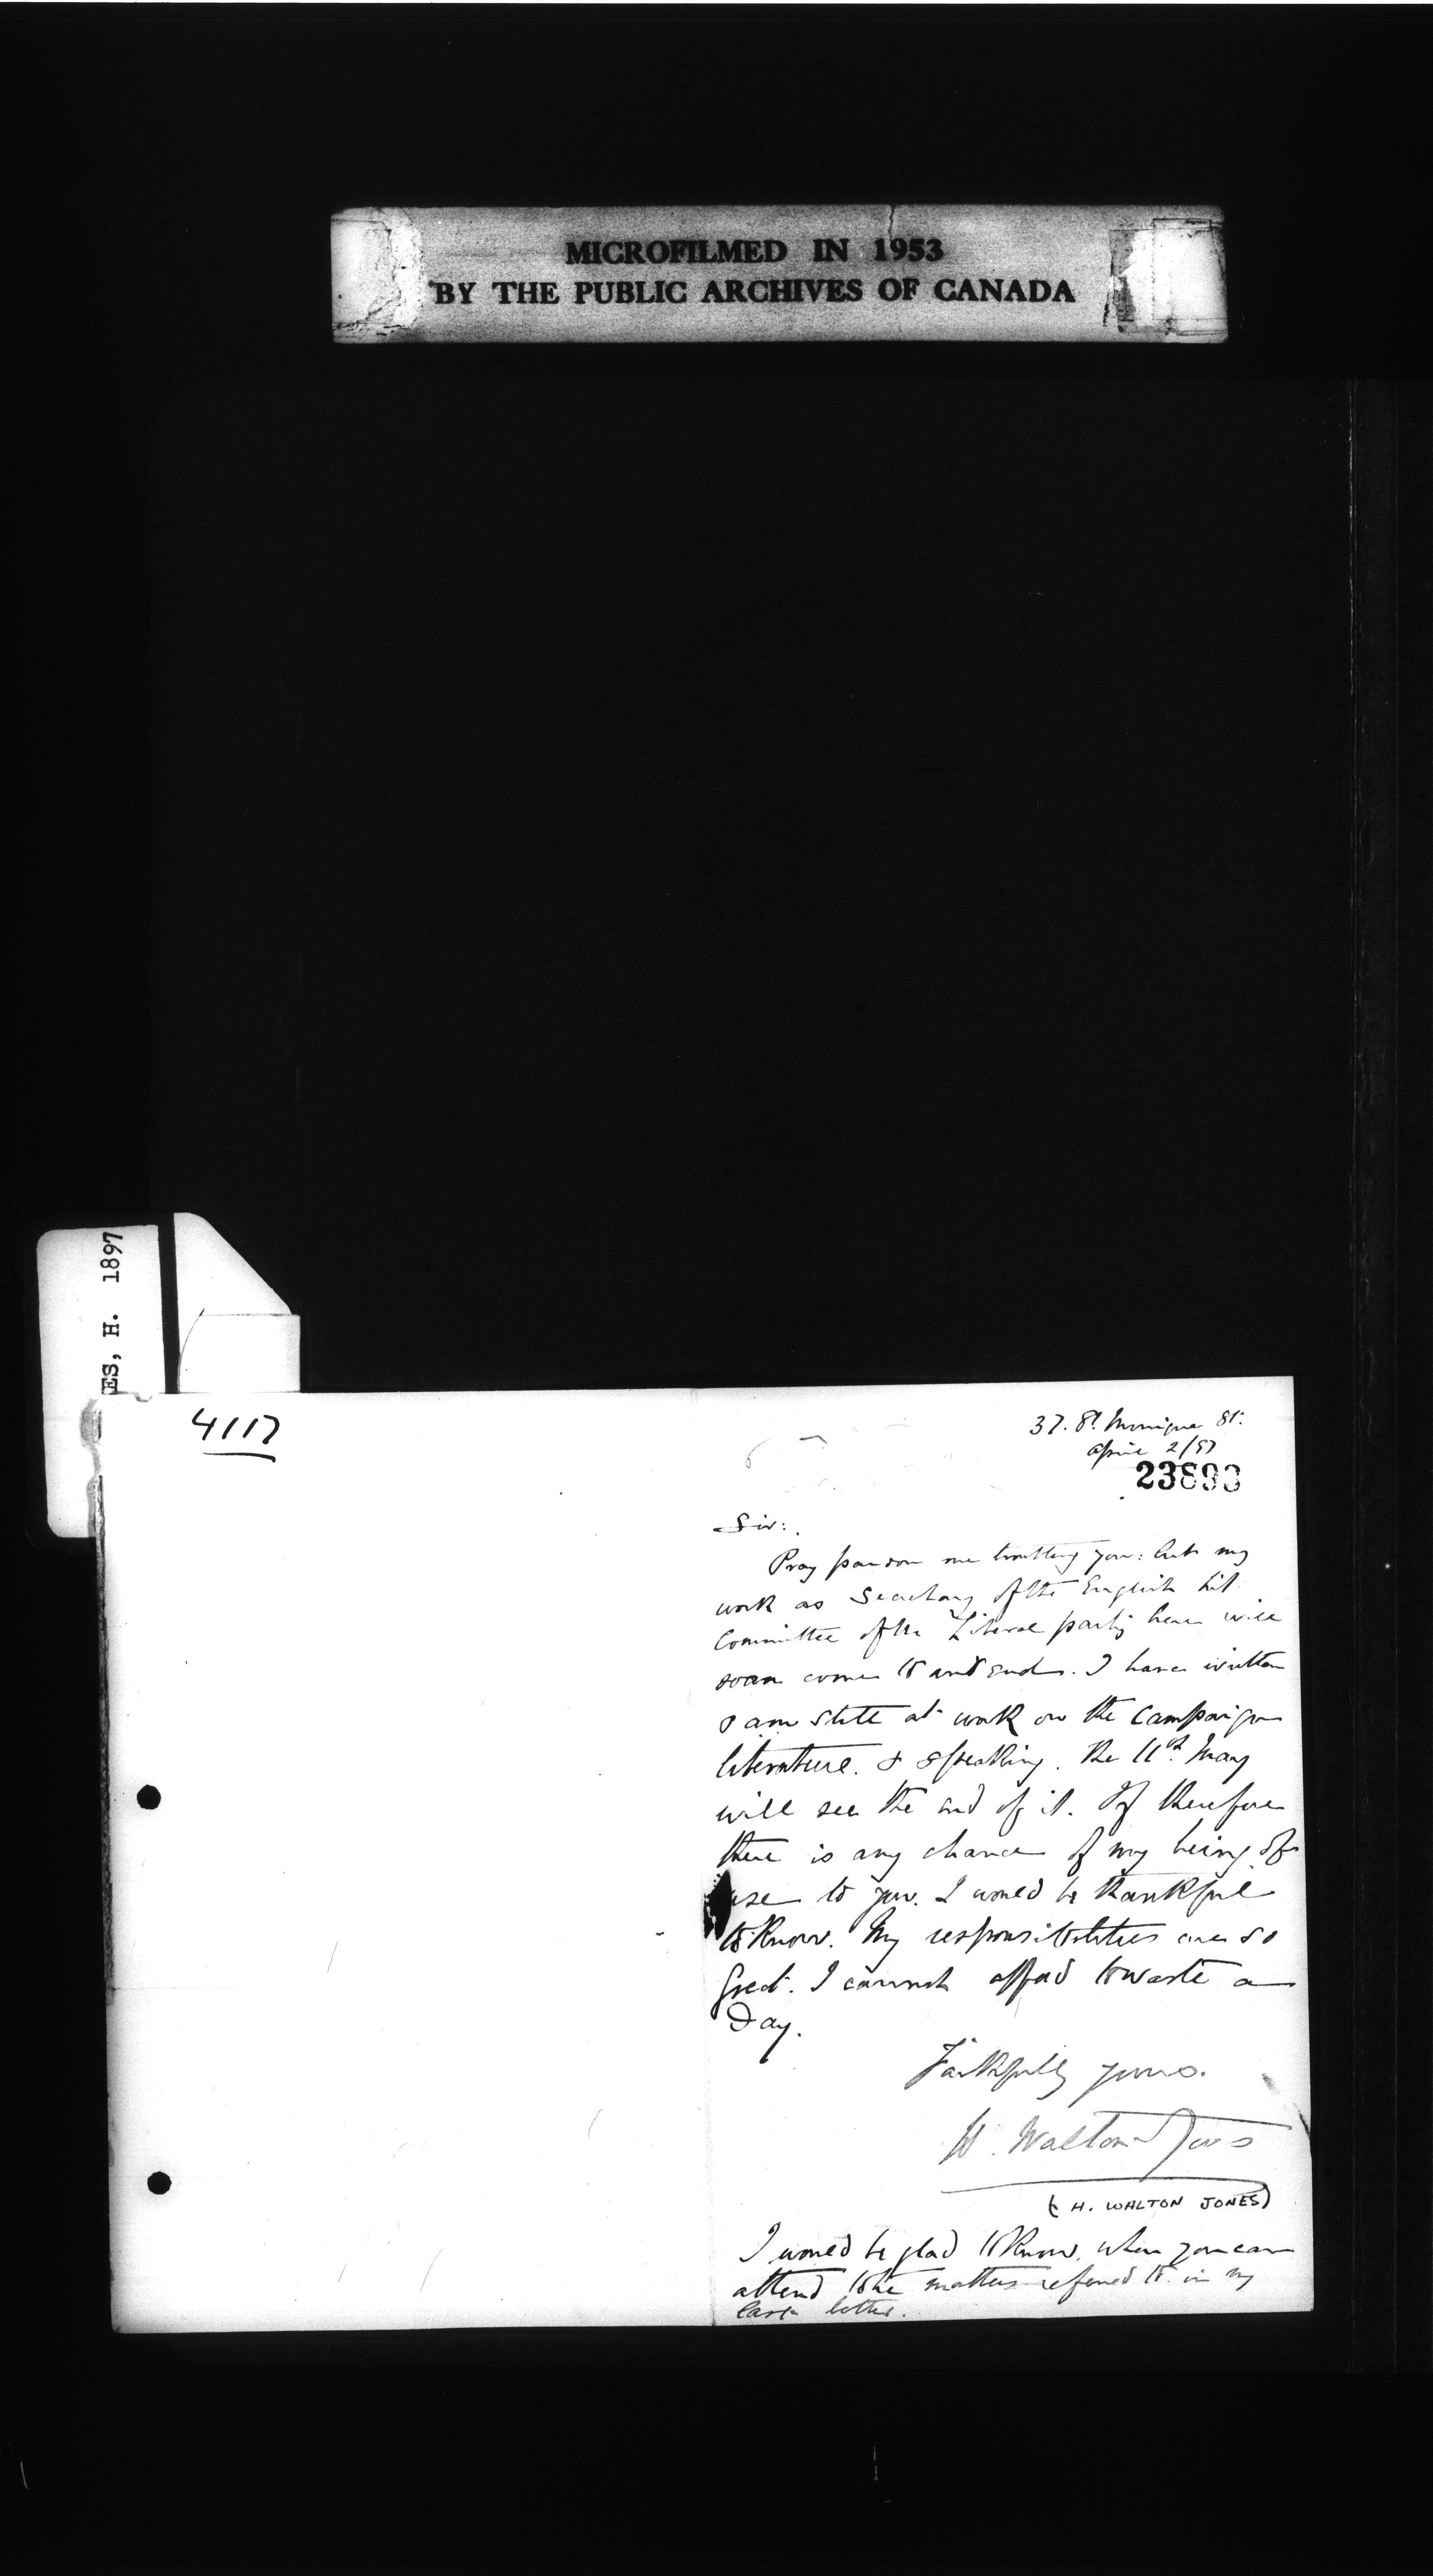 MICROFILMED IN 1953
BY THE PUBLIC ARCHIVES OF CANADA
ES, H. 1897
4117
37. St. Monique St.
April 2/97
23893
Sir:
Pray pardon me troubling you: but my
work as Secretary of the English Lit.
Committee of the Liberal party here will
soon come to an end. I have written
& am still at work on the campaign
literature. & speaking. The 11th. May
will see the end of it. If therefore
there is any chance of my being of
use to you. I would be thankful
to know. My responsibilities are so
great. I cannot afford to waste a
Day.
Faithfully yours.
H. Walton Jones
(H. WALTON JONES)
I would be glad to know, when you can
attend to the matters referred to in my
last letter.